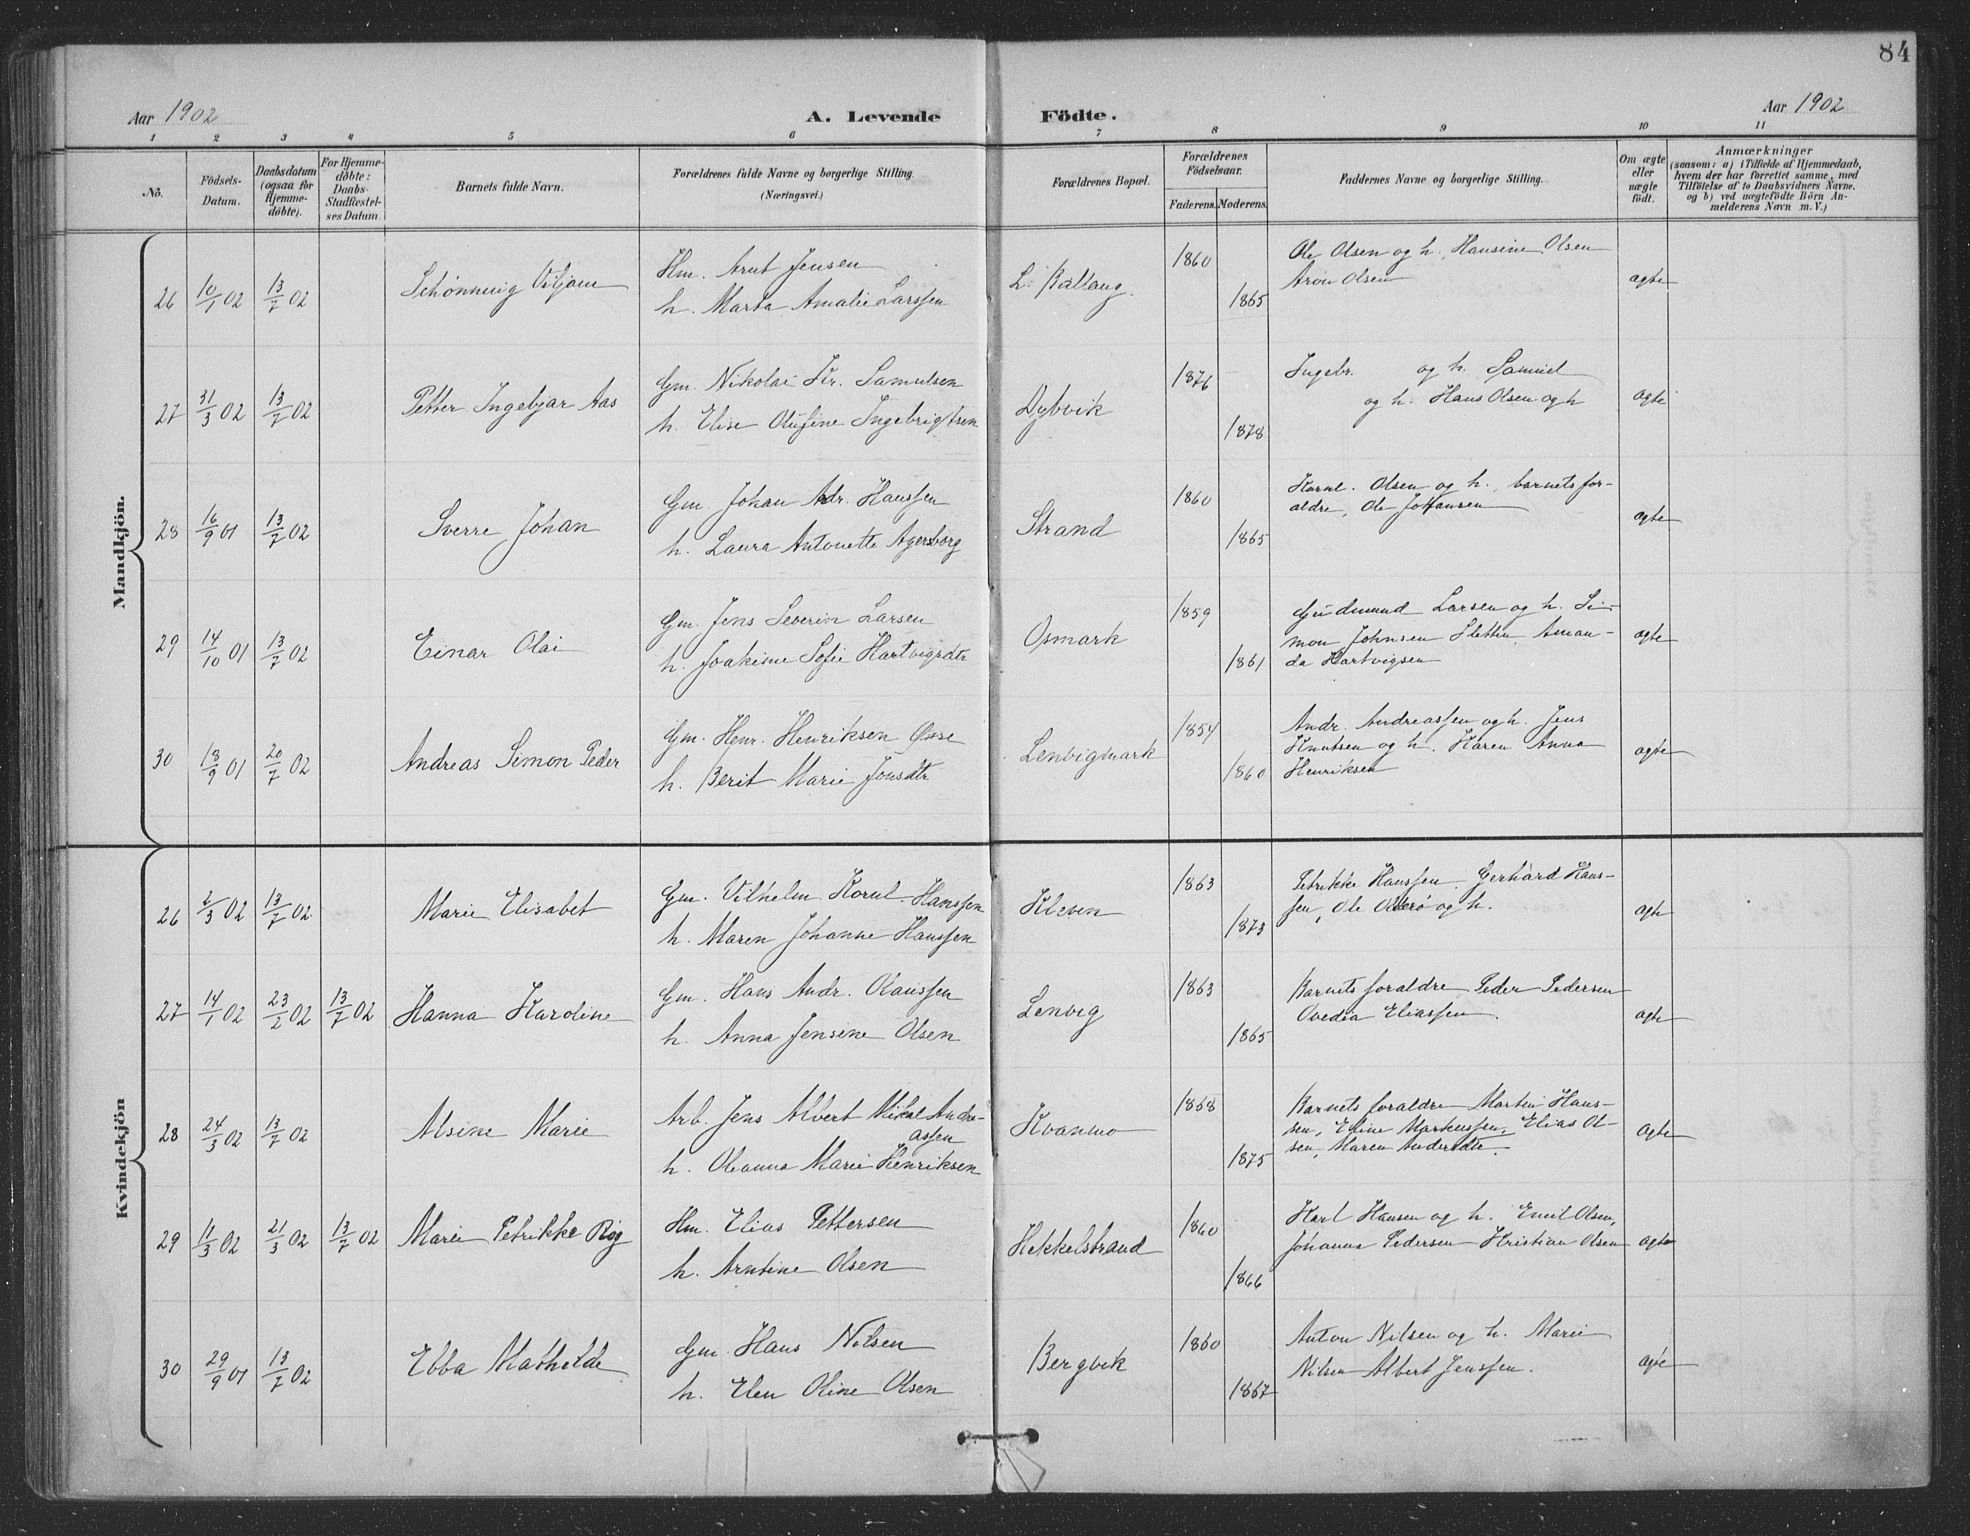 84
Aar 1902
A. Levende Födte.
Aar 1902
1 2 3 4 5 6 7 8 9 10 11
No.
Födsels-Datum.
Daabsdatum (ogsaa för Hjemme-döbte).
For Hjemme-döbte: Daabs-Stadfestel-ses Datum.
Barnets fulde Navn.
Forældrenes fulde Navne og borgerlige Stilling. (Næringsvei.)
Forældrenes Bopæl.
Forældrenes Födselsaar.
Faderens. Moderens.
Faddernes Navne og borgerlige Stilling.
Om ægte eller uægte födt.
Anmærkninger
(saasom: a) i Tilfælde af Hjemmedaab,
hvem der har forrettet samme, med
Tilföielse af to Daabsvidners Navne.
og b) ved uægtefödte Börn An-
melderens Navn m. V.)
Mandkjön.
26 10/1 02 13/7 02 Schönning Viljam
Hm. Arnt Jensen
h. Marta Amalie Larssen
L. Ballang.
1860
1865
Ole Olsen og h. Hansine Olsen
Aron Olsen
ægte
27 31/3 02 13/7 02 Petter Ingebjar Aas
Gm. Nikolai Kr. Samulsen
h. Elise Olufine Ingebrigtsen
Dybvik
1876
1878
Ingebr. og h. Samuel
og h. Hans Olsen og h
ægte
28 16/9 01 13/7 02 Sverre Johan
Gm. Johan Adr. Hanssen
h. Laura Antonette Agersborg
Strand
1860
1865
Kornl. Olsen og h., barnets for-
ældre, Ole Johansen
ægte
29 14/10 01 13/7 02 Einar Olai
Gm. Jens Severin Larsen
h. Joakime Sofie Hartvigsdtr
Osmark
1859
1861
Gudmund Larsen og h. Si-
mon Johnsen Sletten Aman-
da Hartvigsen
ægte
30 18/9 01 20/7 02 Andreas Simon Peder
Gm. Henr. Henriksen
h. Berit Marie Jonsdtr
Lenvigmark
1854
1860
Andr. Andreassen og h. Jens
Knutsen og h. Karen Anna
Henriksen
ægte
Kvindekjön
26 2/3 02 13/7 02 Marie Elisabet
Gm. Vilhelm Kornl. Hanssen
h. Maren Johanne Hanssen
Kleven
1863
1873
Petrikke Hanssen Gerhard Hans-
sen, Ole og h.
ægte
27 14/1 02 23/2 02 13/7 02 Hanna Karoline
Gm. Hans Andr. Klaussen
h. Anna Jensine Olsen
Lenvig
1863
1865
Barnets forældre Peder Pedersen
Ovedia Eliassen.
ægte
28 24/3 02 13/7 02 Alsine Marie
Arb. Jens Albert Mikal Andre-
assen
h. Oleanna Marie Henriksen
Kvanmo
1868
1875
Barnets forældre Martin Hans-
sen, Eline Markussen, Elias Ol-
sen, Maren Andersdtr.
ægte
29 11/3 02 21/3 02 13/7 02 Marie Petrikke Røg
Hm. Elias Pettersen
h. Arntine Olsen
Hekkelstrand
1860
1866
Karl Hansen og h. Emil Olsen,
Johanna Pedersen Kristian Olsen
ægte
30 29/9 01 13/7 02 Ebba Mathilde
Gm. Hans Nilsen
h. Elen Oline Olsen
Bergvik
1860
1867
Anton Nilsen og h. Marie
Nilsen Albert Jenssen.
ægte